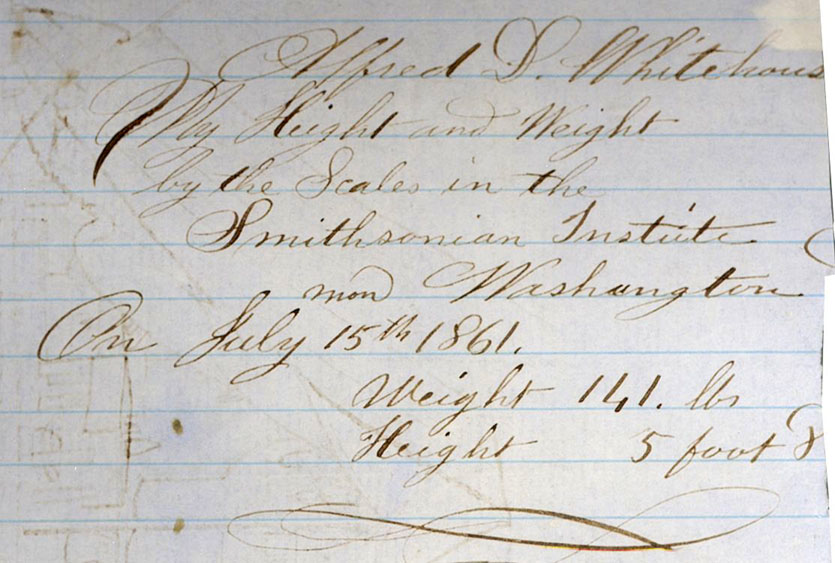 Alfred D. Whitehous
My Height and Weight
by the Scales in the
Smithsonian Instiute
Washington
On July 15th 1861.
Weight 141. lbs
Height 5 foot 8